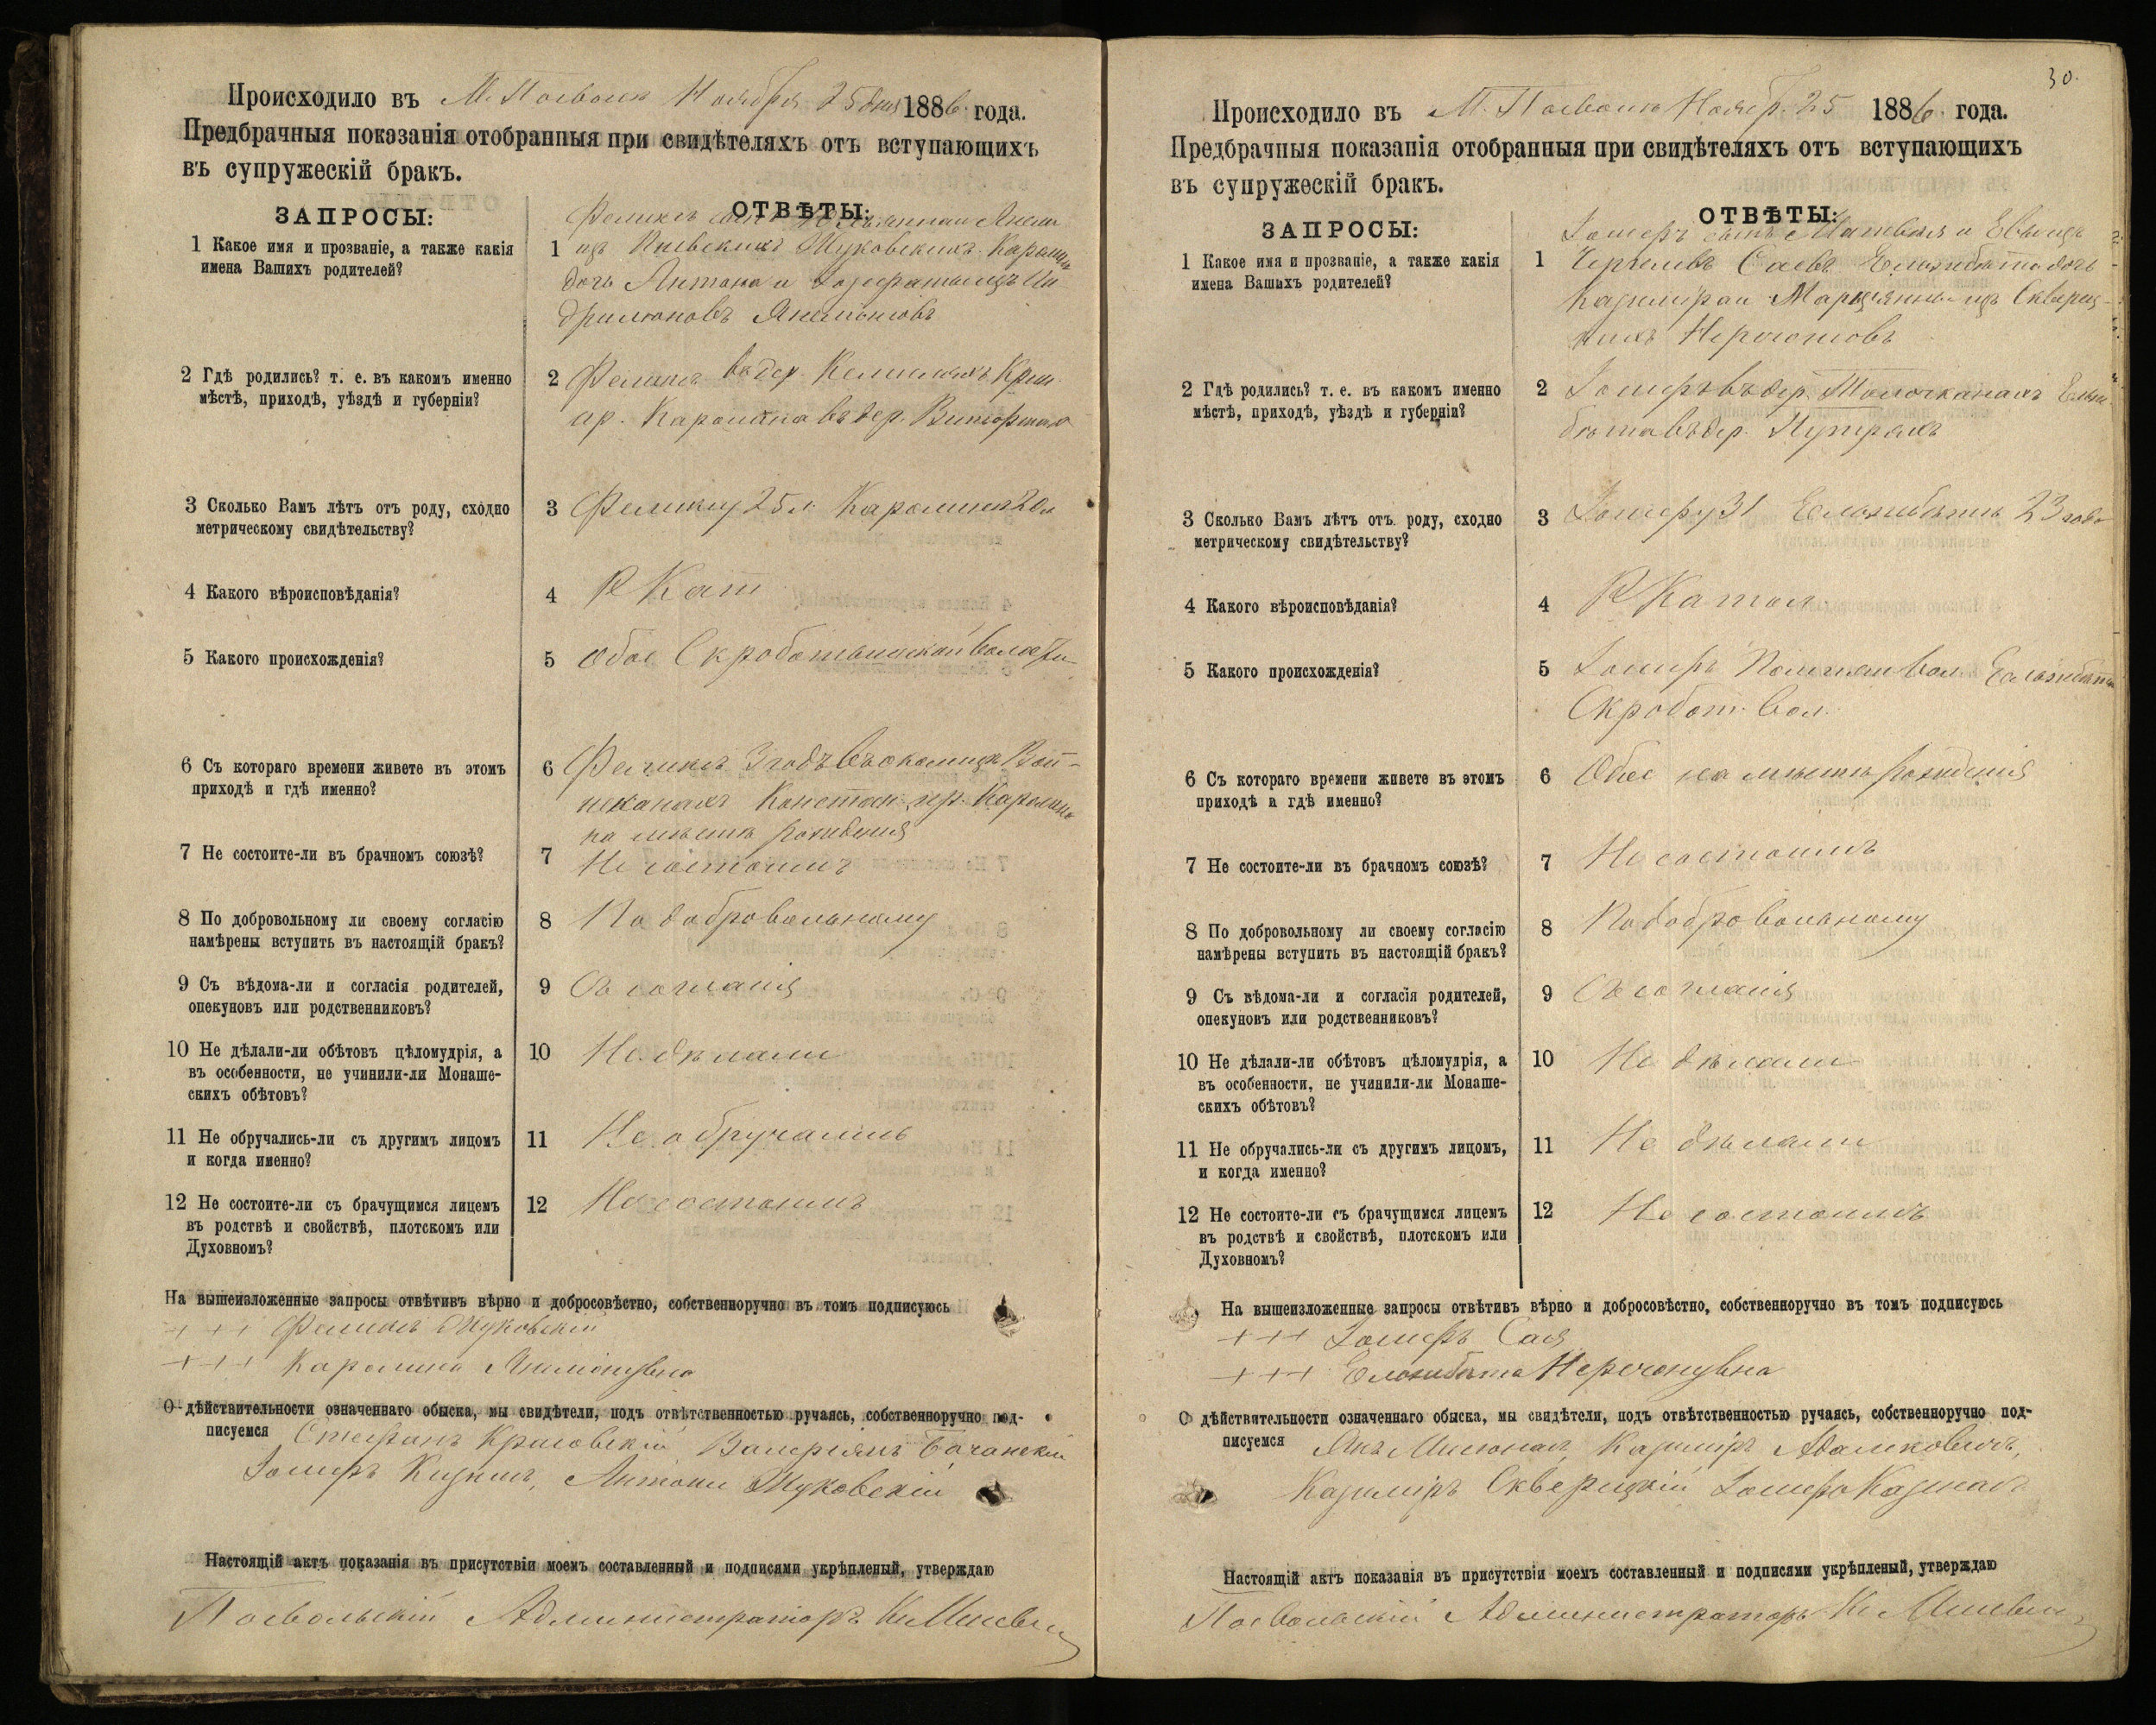 Происходило въ М. Посволи Ноября 25 дня 1886 года.
Предбрачныя показанія отобранныя при свидѣтеляхъ отъ вступающихъ
въ супружескій бракъ.
ЗАПРОСЫ:
ОТВѢТЫ:
1 Какое имя и прозваніе, а также какія
имена Вашихъ родителей?
1 Феликсъ сынъ
изъ Жуковскихъ. Каролина
дочь Антона и Іозефаты изъ
2 Гдѣ родились? т. е. въ какомъ именно
мѣстѣ, приходѣ, уѣздѣ и губерніи?
2 Феликсъ въ дер.
пр. Каролина въ дер.
3 Сколько Вамъ лѣтъ отъ роду, сходно
метрическому свидѣтельству?
3 Феликсу 25 л. Каролинѣ 20 л
4 Какого вѣроисповѣданія?
4 Р Кат
5 Какого происхожденія?
5 Обое
6 Съ котораго времени живете въ этомъ
приходѣ и гдѣ именно?
6 Феликсъ 3 годъ въ околицѣ
пр. Каролина
на мѣстѣ рожденія
7 Не состоите-ли въ брачномъ союзѣ?
7 Не состоимъ
8 По добровольному ли своему согласію
намѣрены вступить въ настоящій бракъ?
8 По добровольному
9 Съ вѣдома-ли и согласія родителей,
опекуновъ или родственниковъ?
9 Съ согласія
10 Не дѣлали-ли обѣтовъ цѣломудрія, а
въ особенности, не учинили-ли Монаше-
скихъ обѣтовъ?
10 Не дѣлали
11 Не обручались-ли съ другимъ лицомъ
и когда именно?
11 Не обручались
12 Не состоите-ли съ брачущимся лицемъ
въ родствѣ и свойствѣ, плотскомъ или
Духовномъ?
12 Не состоимъ
На вышеизложенные запросы отвѣтивъ вѣрно и добросовѣстно, собственноручно въ томъ подписуюсь
+ + + Феликсъ Жуковскій
+ + + Каролина
О дѣйствительности означеннаго обыска, мы свидѣтели, подъ отвѣтственностью ручаясь, собственноручно под-
писуемся Стефанъ Красовскій Валеріянъ
Іосифъ Антони Жуковскій
Настоящій актъ показанія въ присутствіи моемъ составленный и подписями укрѣпленый, утверждаю
Посвольскій Администраторъ
30.
Происходило въ М. Посволи Нояб. 25 1886 года.
Предбрачныя показанія отобранныя при свидѣтеляхъ отъ вступающихъ
въ супружескій бракъ.
ЗАПРОСЫ:
ОТВѢТЫ:
1 Какое имя и прозваніе, а также какія
имена Вашихъ родителей?
1 Іосифъ сынъ Матвѣя и Евы изъ
Елизабета дочь
Казиміра и Марціянны изъ
2 Гдѣ родились? т. е. въ какомъ именно
мѣстѣ, приходѣ, уѣздѣ и губерніи?
2 Іосифъ въ дер.
бета въ дер.
3 Сколько Вамъ лѣтъ отъ роду, сходно
метрическому свидѣтельству?
3 Іосифу 31 Елизабетѣ 23 года
4 Какого вѣроисповѣданія?
4 Р Катол
5 Какого происхожденія?
5 Іосифъ вол. Елизабета
Скробот. вол.
6 Съ котораго времени живете въ этомъ
приходѣ и гдѣ именно?
6 Обое на мѣстѣ рожденія
7 Не состоите-ли въ брачномъ союзѣ?
7 Не состоимъ
8 По добровольному ли своему согласію
намѣрены вступить въ настоящій бракъ?
8 По добровольному
9 Съ вѣдома-ли и согласія родителей,
опекуновъ или родственниковъ?
9 Съ согласія
10 Не дѣлали-ли обѣтовъ цѣломудрія, а
въ особенности, не учинили-ли Монаше-
скихъ обѣтовъ?
10 Не дѣлали
11 Не обручались-ли съ другимъ лицомъ,
и когда именно?
11 Не дѣлали
12 Не состоите-ли съ брачущимся лицемъ
въ родствѣ и свойствѣ, плотскомъ или
Духовномъ?
12 Не состоимъ
На вышеизложенные запросы отвѣтивъ вѣрно и добросовѣстно, собственноручно въ томъ подписуюсь
+ + + Іосифъ
+ + + Елизабета
О дѣйствительности означеннаго обыска, мы свидѣтели, подъ отвѣтственностью ручаясь, собственноручно под-
писуемся Казиміръ Адамковичъ,
Казиміръ Скверецкій Іосифъ
Настоящій актъ показанія въ присутствіи моемъ составленный и подписями укрѣпленый, утверждаю
Посвольскій Администраторъ